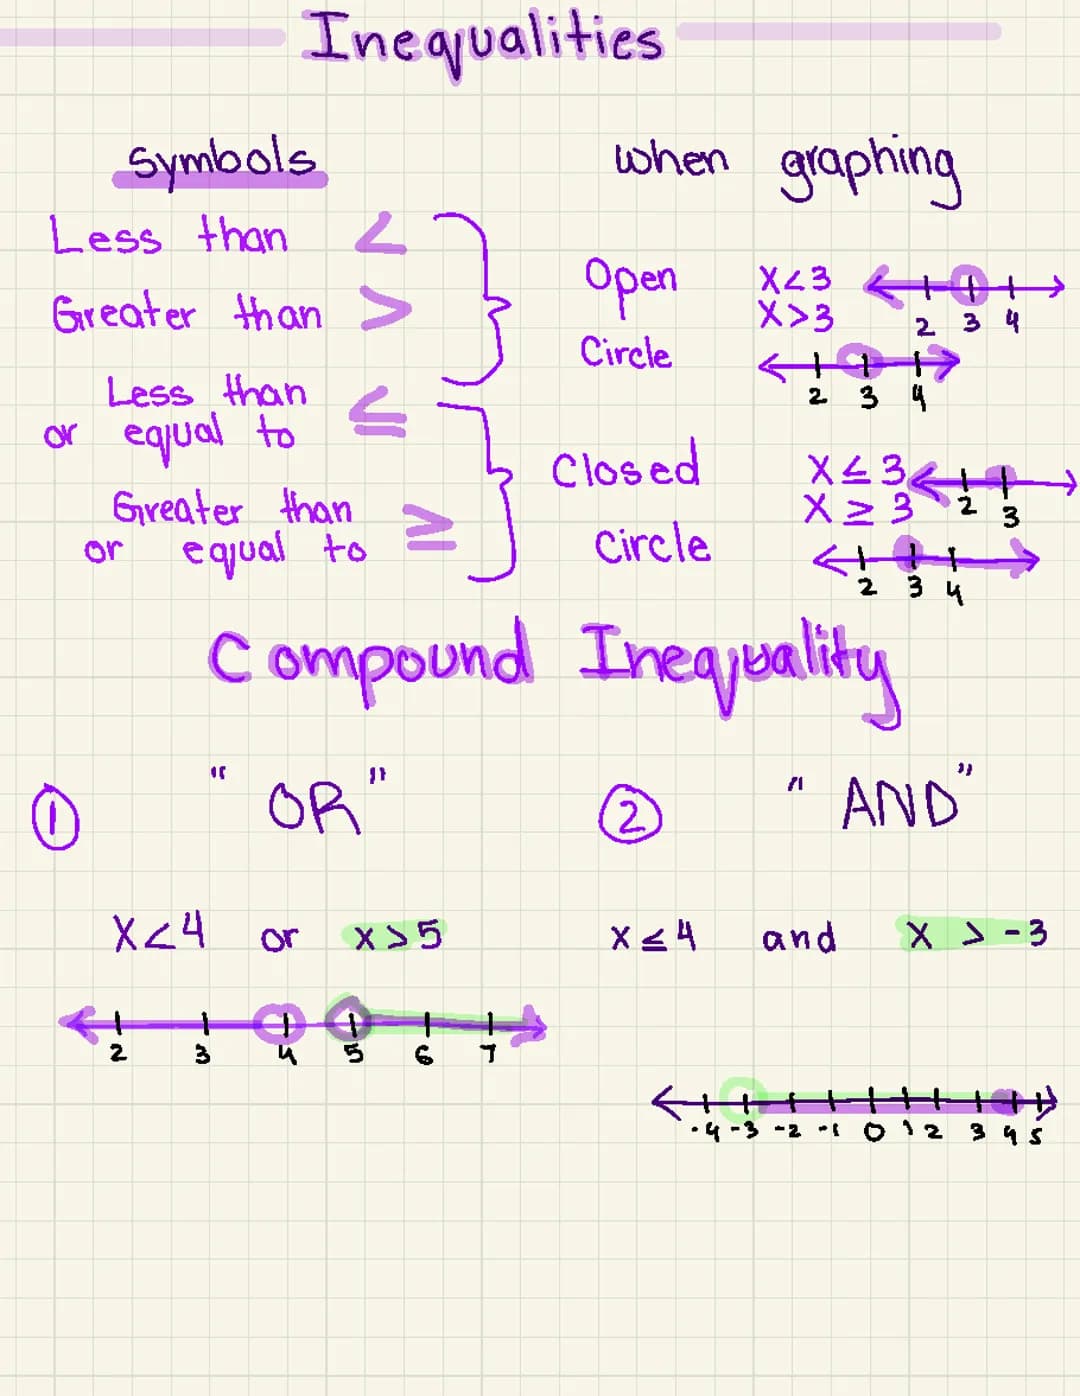 Inequalities
symbols
Less than <
Greater than >
Less than
or equal to ≤
Greater than
or equal to ≥
when graphing
Open
Circle
X<3
X>3
2 3 4
2 3 4
Closed
Circle
X≤3
X≥3
2 3
2 3 4
Compound Inequality
① "OR"
X<4 or x>5
2 3 4 5 6 7
② "AND"
X≤4 and X > -3
-4 -3 -2 -1 0 1 2 3 4 5